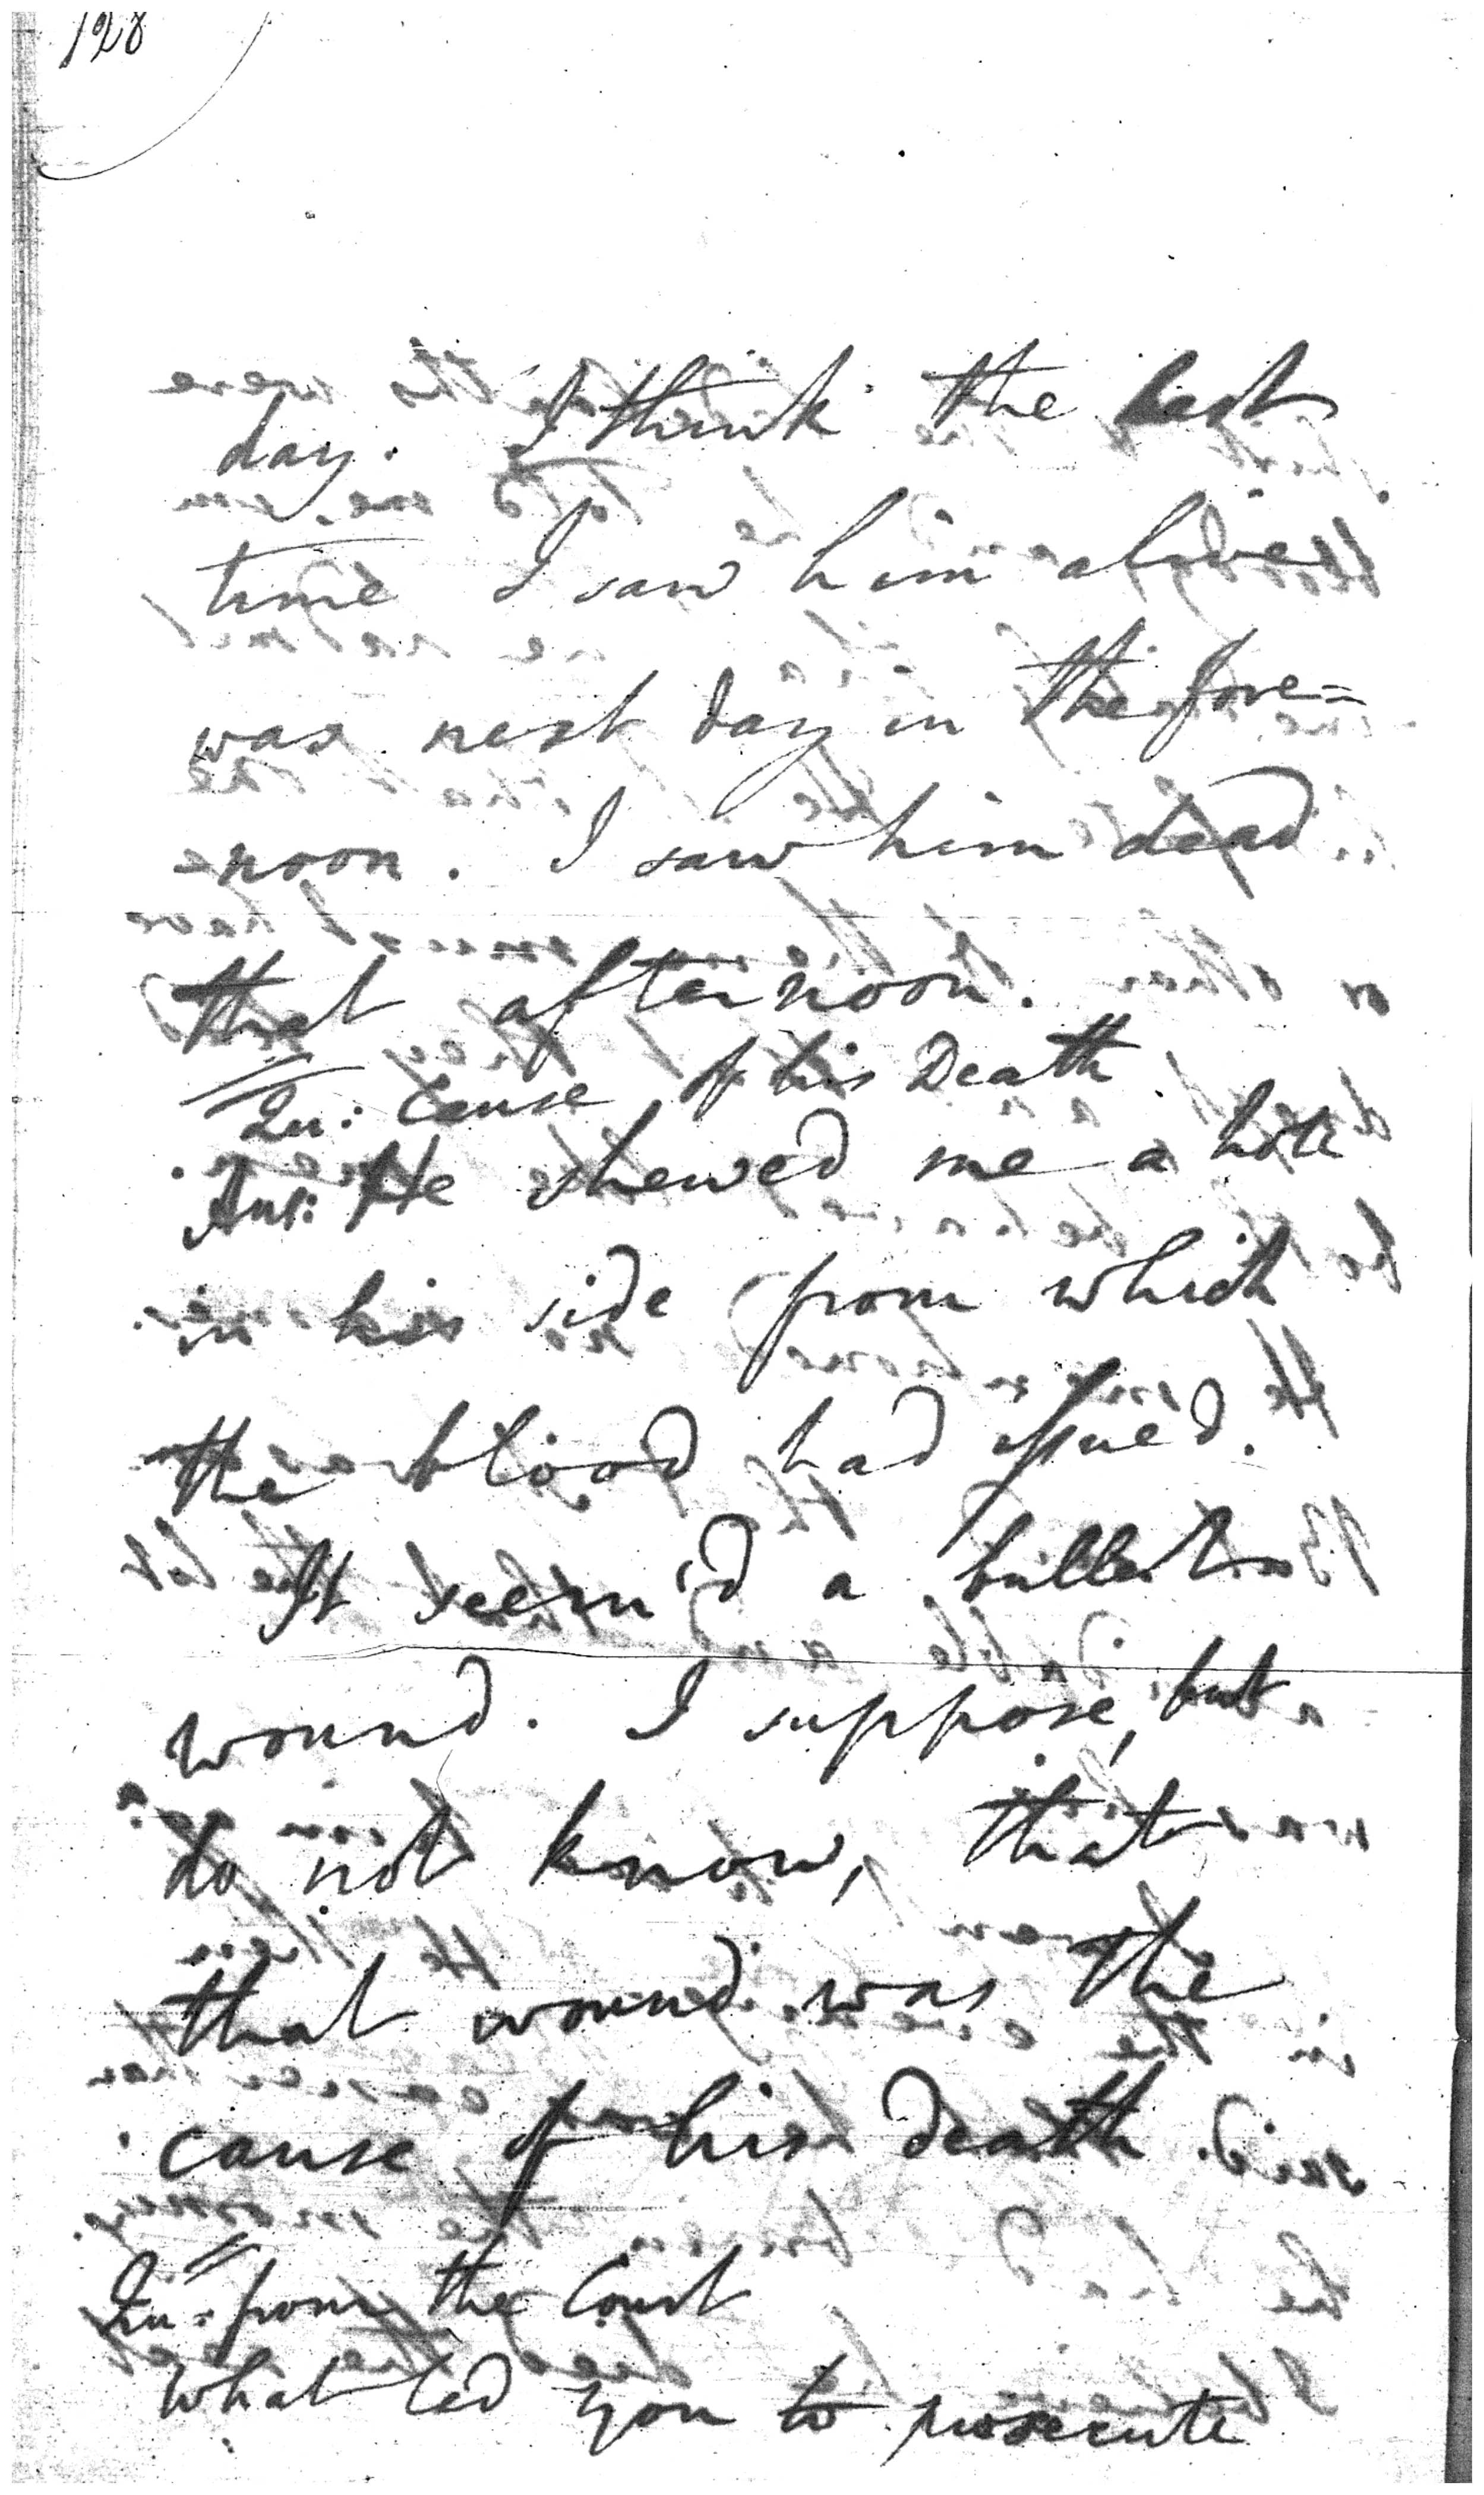 128
day. I think the last
time I saw him alive
was next day in the fore=
noon. I saw him dead
that afternoon.
Qu: Cause of his Death
Ans: He shewed me a hole
in his side from which
the blood had issued.
It seem'd a bullet
wound. I suppose, but
do not know, that
that wound was the
cause of his death.
Qu: from the Court
What led you to prosecute